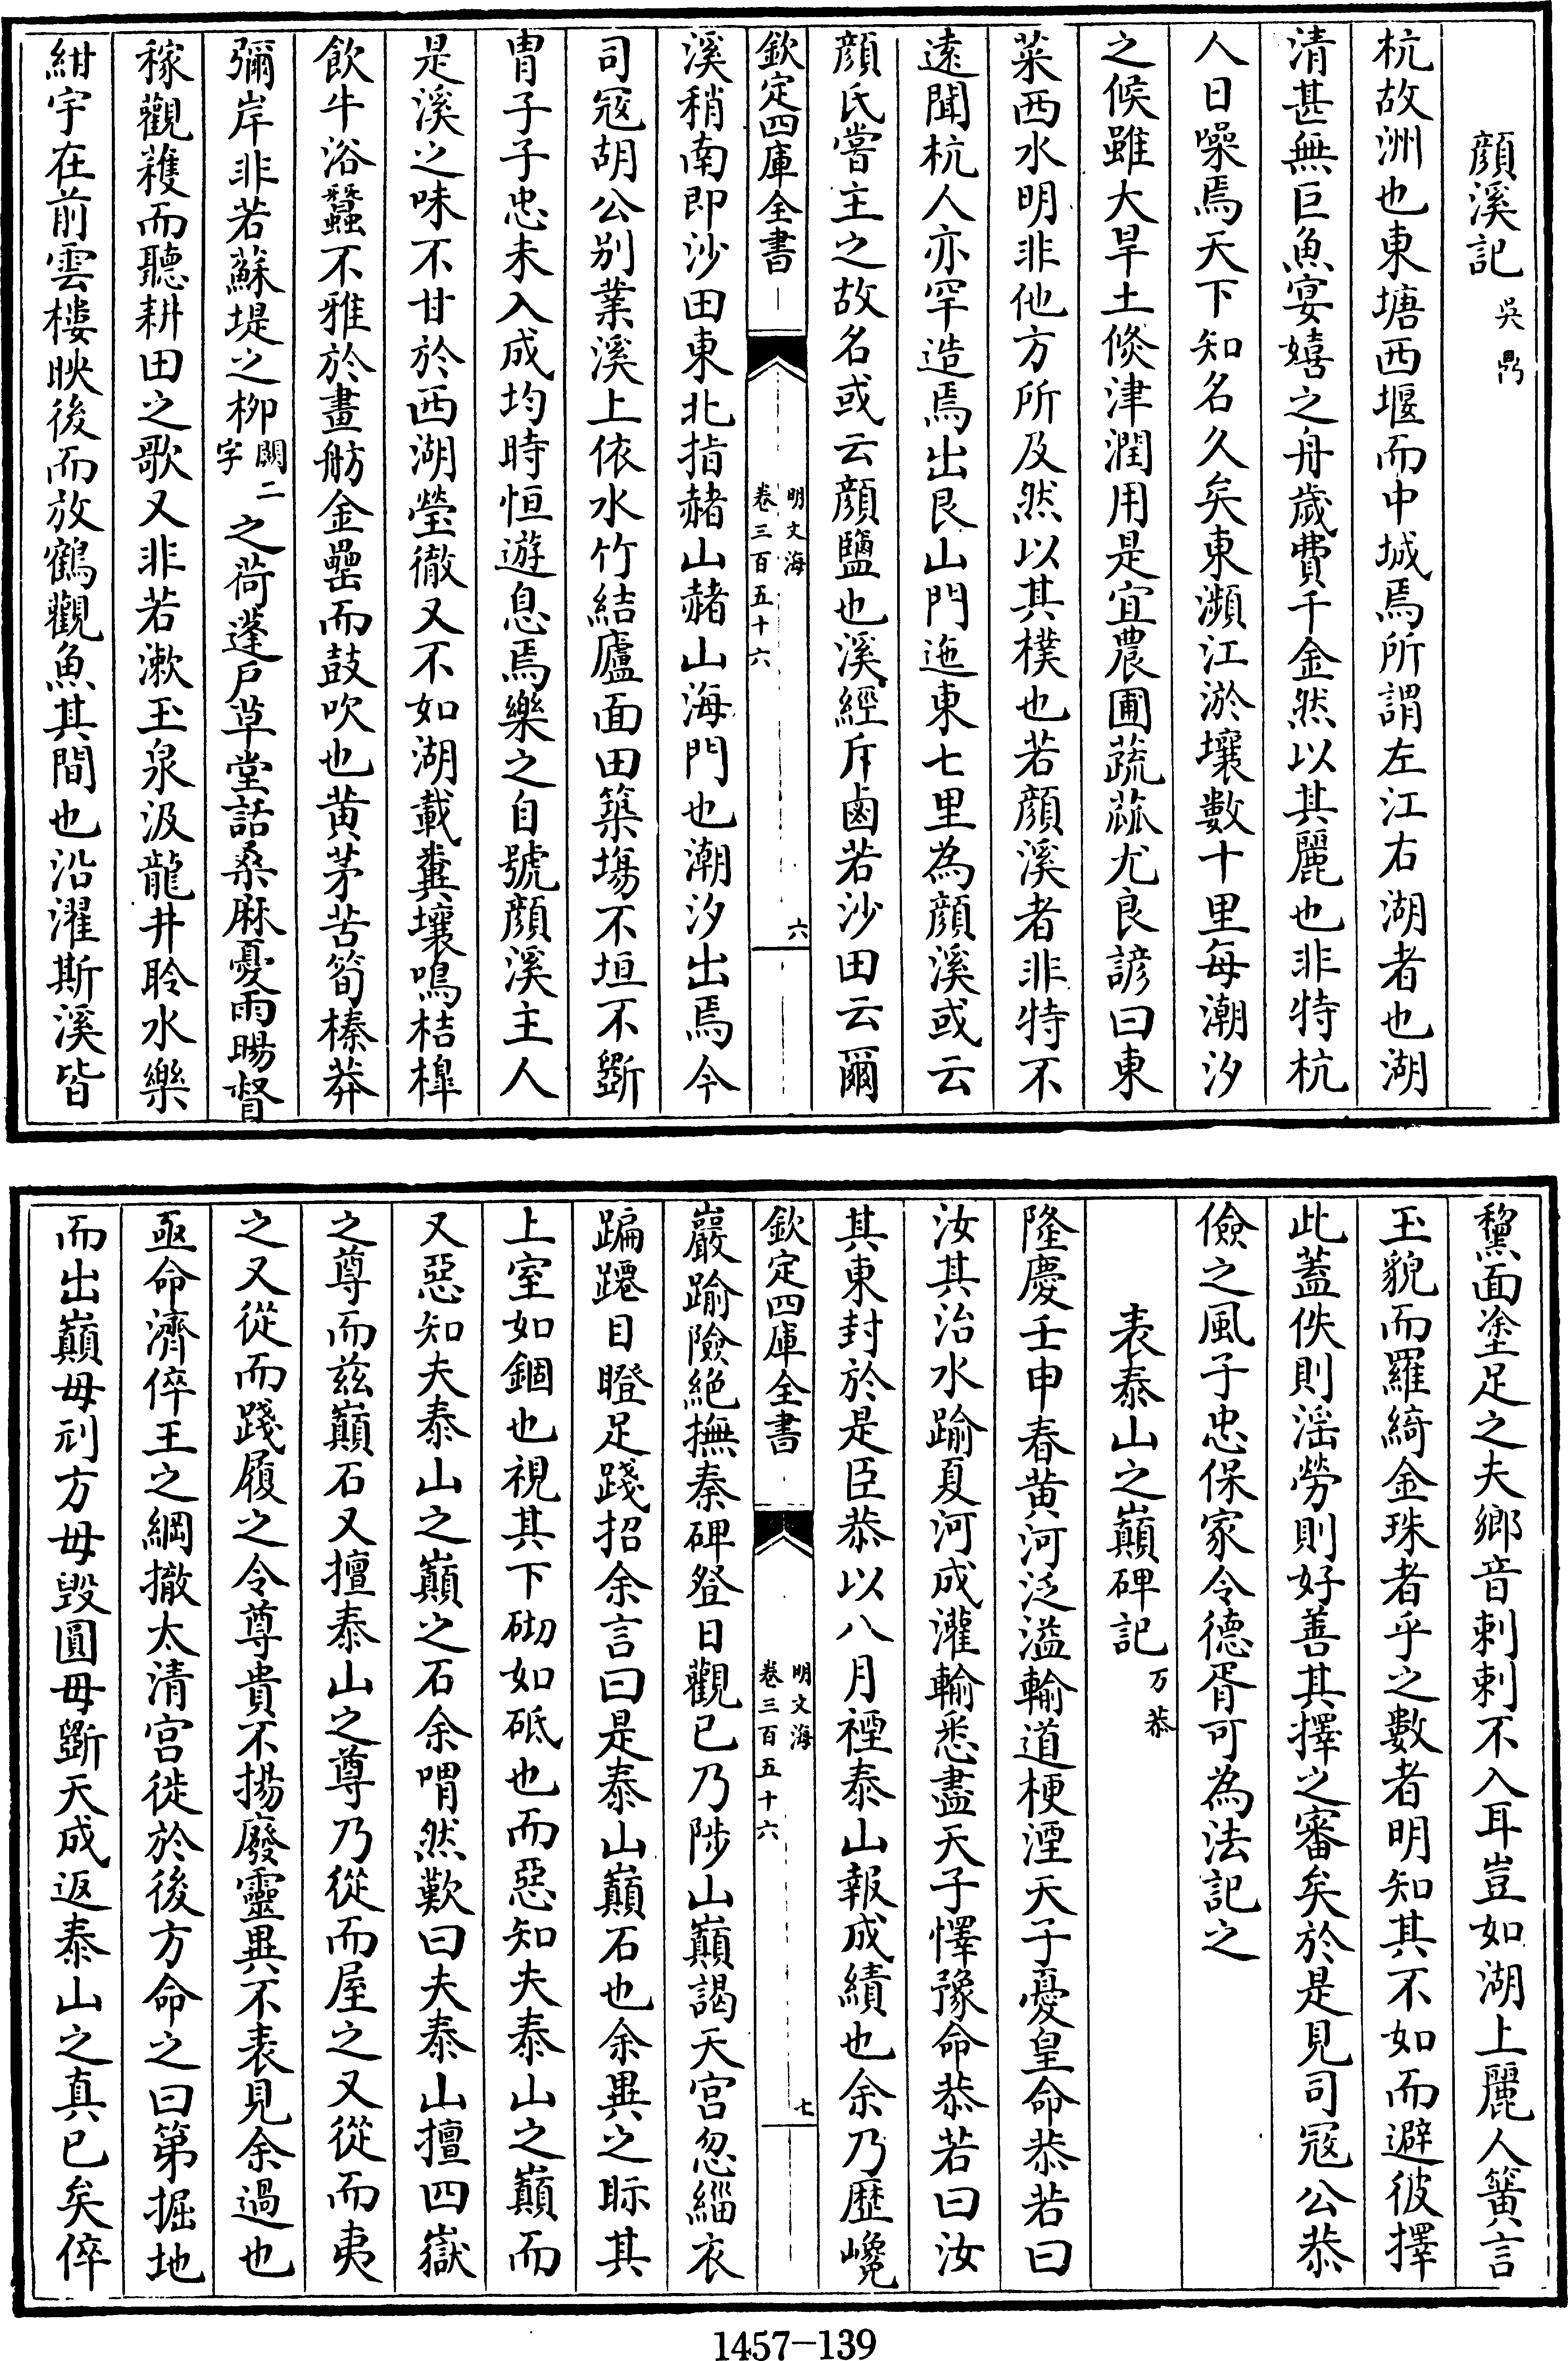 顔溪記 吳鼎
杭故洲也東塘西堰而中城焉所謂左江右湖者也湖
清甚無巨魚宴嬉之舟歲費千金然以其麗也非特杭
人日噪焉天下知名久矣東瀕江淤壤數十里每潮汐
之候雖大旱土倐津潤用是宜農圃蔬蓏尤良諺曰東
菜西水明非他方所及然以其樸也若顔溪者非特不
逺聞杭人亦罕造焉出艮山門迤東七里為顔溪或云
顔氏嘗主之故名或云顔鹽也溪經斥鹵若沙田云爾
欽定四庫全書
明文海
卷三百五十六
六
溪稍南即沙田東北指赭山赭山海門也潮汐出焉今
司冦胡公别業溪上依水竹結廬面田築塲不垣不斵
胄子子忠未入成均時恒遊息焉樂之自號顔溪主人
是溪之味不甘於西湖瑩徹又不如湖載糞壤鳴桔槹
飲牛浴蠶不雅於畫舫金罍而鼓吹也黄茅苦筍榛莽
彌岸非若蘇堤之栁闕二字之荷蓬戸草堂話桑麻憂雨暘督
稼觀穫而聽耕田之歌又非若漱玉泉汲龍井聆水樂
紺宇在前雲樓映後而放鶴觀魚其間也沿濯斯溪皆
黧面塗足之夫鄉音剌剌不入耳豈如湖上麗人簧言
玉貌而羅綺金珠者乎之數者明知其不如而避彼擇
此葢佚則滛勞則好善其擇之審矣於是見司冦公恭
儉之風子忠保家令德胥可為法記之
表泰山之巔碑記 万恭
隆慶壬申春黄河泛溢輸道梗湮天子憂皇命恭若曰
汝其治水踰夏河成灌輸悉盡天子懌豫命恭若曰汝
其東封於是臣恭以八月禋泰山報成績也余乃歴巉
欽定四庫全書
明文海
卷三百五十六
七
巖踰險絶撫秦碑登日觀已乃陟山巔謁天宫忽緇衣
蹁躚目瞪足踐招余言曰是泰山巔石也余異之眎其
上室如錮也視其下砌如砥也而惡知夫泰山之巔而
又惡知夫泰山之巔之石余喟然歎曰夫泰山擅四嶽
之尊而兹巔石又擅泰山之尊乃從而屋之又從而夷
之又從而踐履之令尊貴不揚廢靈異不表見余過也
亟命濟倅王之綱撤太清宫徙於後方命之曰第掘地
而出巔毋刓方毋毁圓毋斵天成返泰山之真已矣倅
1457-139